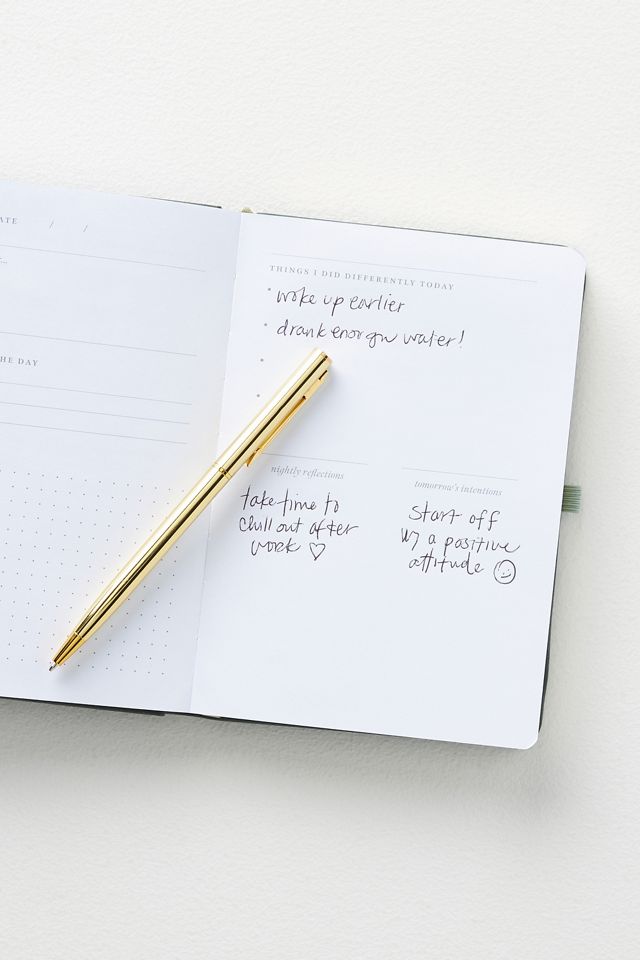 / /
HE DAY
THINGS I DID DIFFERENTLY TODAY
woke up earlier
drank water!
nightly reflections
take time to
chill out after
work ♡
tomorrow's intentions
Start off
w/ a positive
attitude ☺